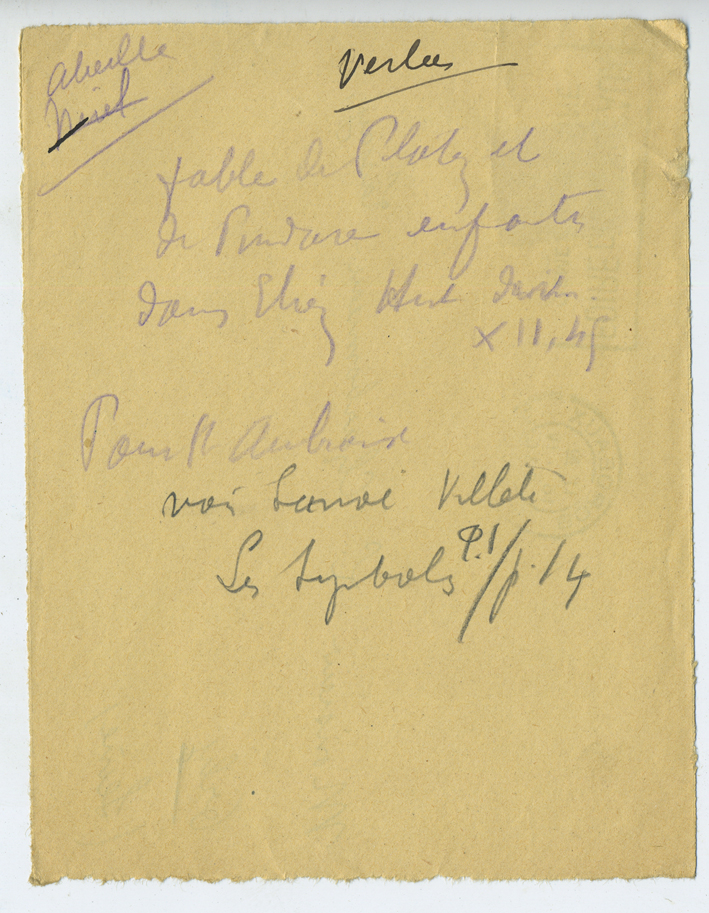 abeille
miel
fable de Platon et
de Pindare enfants
dans Elien Hist
XII, 45
Pour St Ambroise
voir Lanoë Villène
Les Symboles P. 1/p. 14